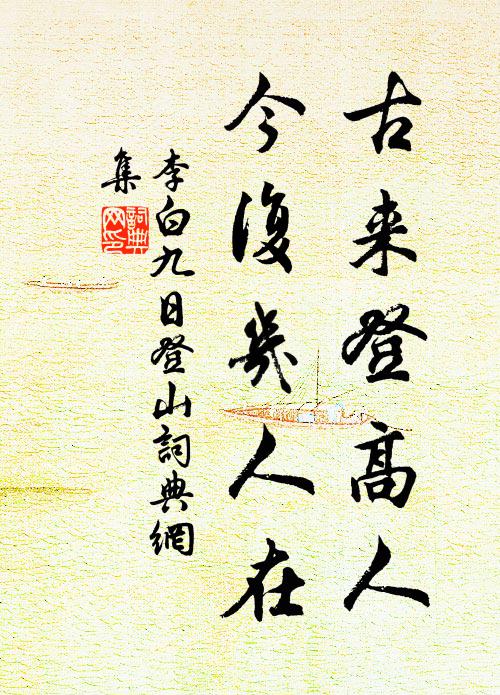 古来登高人
今復幾人在
李白九日登山詞典網
集
詞典
网印